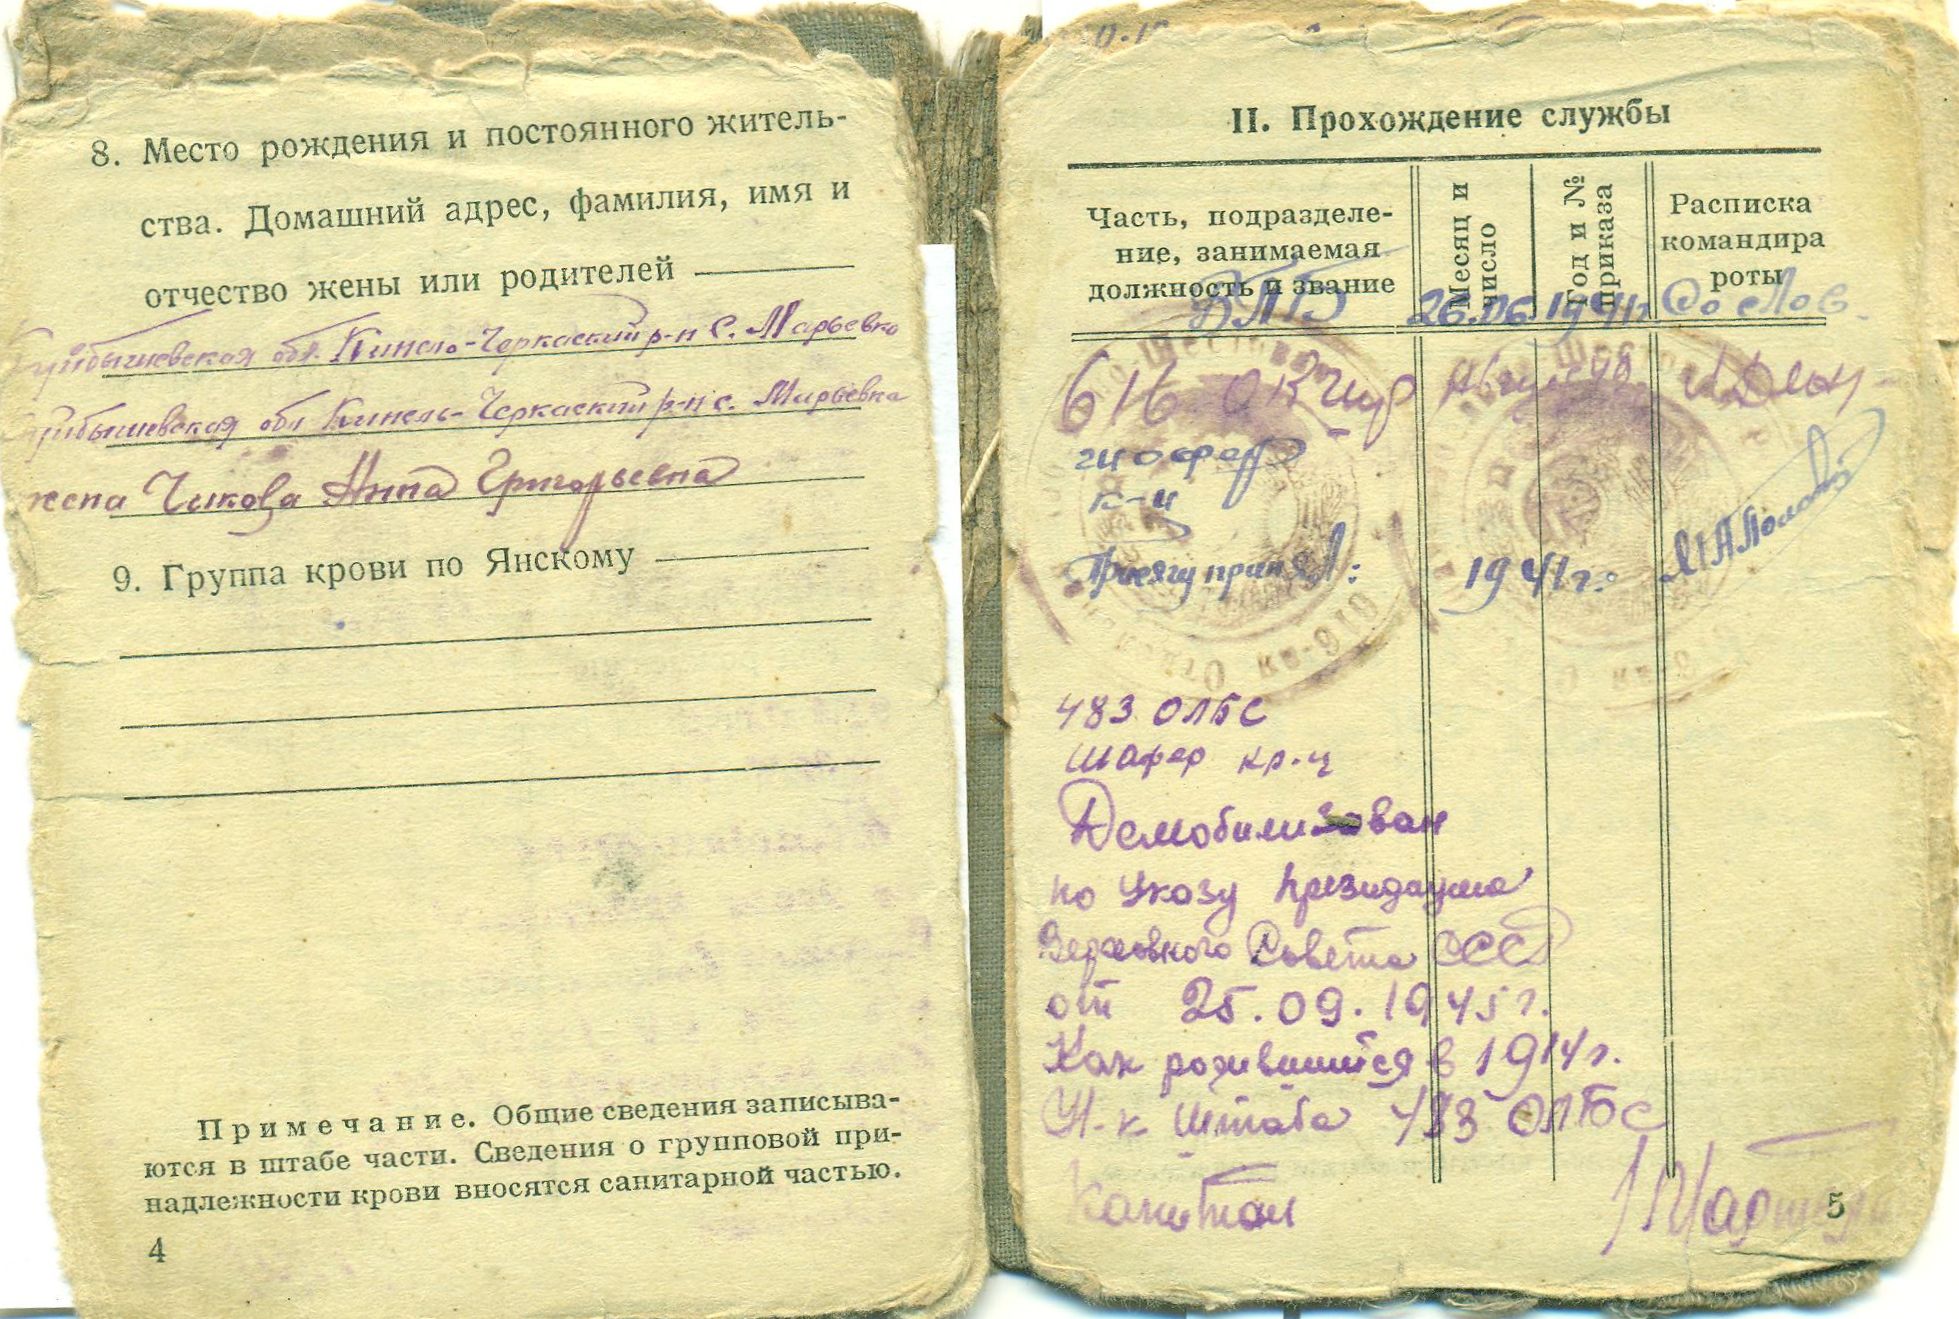 8. Место рождения и постоянного житель-
ства. Домашний адрес, фамилия, имя и
отчество жены или родителей
Куйбышевская обл. Кинель-Черкаский р-н с. Марьевка
Куйбышевская обл Кинель-Черкаский р-н с. Марьевка
жена Чикова Анна Григорьевна
9. Группа крови по Янскому
Примечание. Общие сведения записыва-
ются в штабе части. Сведения о групповой при-
надлежности крови вносятся санитарной частью.
4
II. Прохождение службы
Часть, подразделе-
ние, занимаемая
должность и звание
Месяц и
число
Год и №
приказа
Расписка
командира
роты
26.06 1941г
616
к-ц
Присягу принял: 1941г.
483 ОЛБС
Шофер кр-ц
Демобилизован
по Указу Президиума
Верховного Совета СССР
от 25.09.1945г.
Как родившийся в 1914г.
Н-к Штаба 483 ОЛБС
Капитан
5